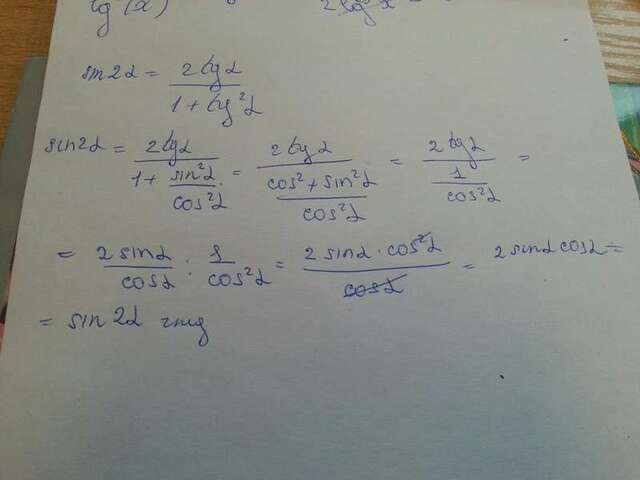 sin2α = 2tgα / 1 + tg²α
sin2α = 2tgα / 1 + sin²α / cos²α = 2tgα / cos² + sin²α / cos²α = 2tgα / 1 / cos²α =
= 2sinα / cosα : 1 / cos²α = 2 sinα · cos²α / cosα = 2 sinα cosα =
= sin2α чтд